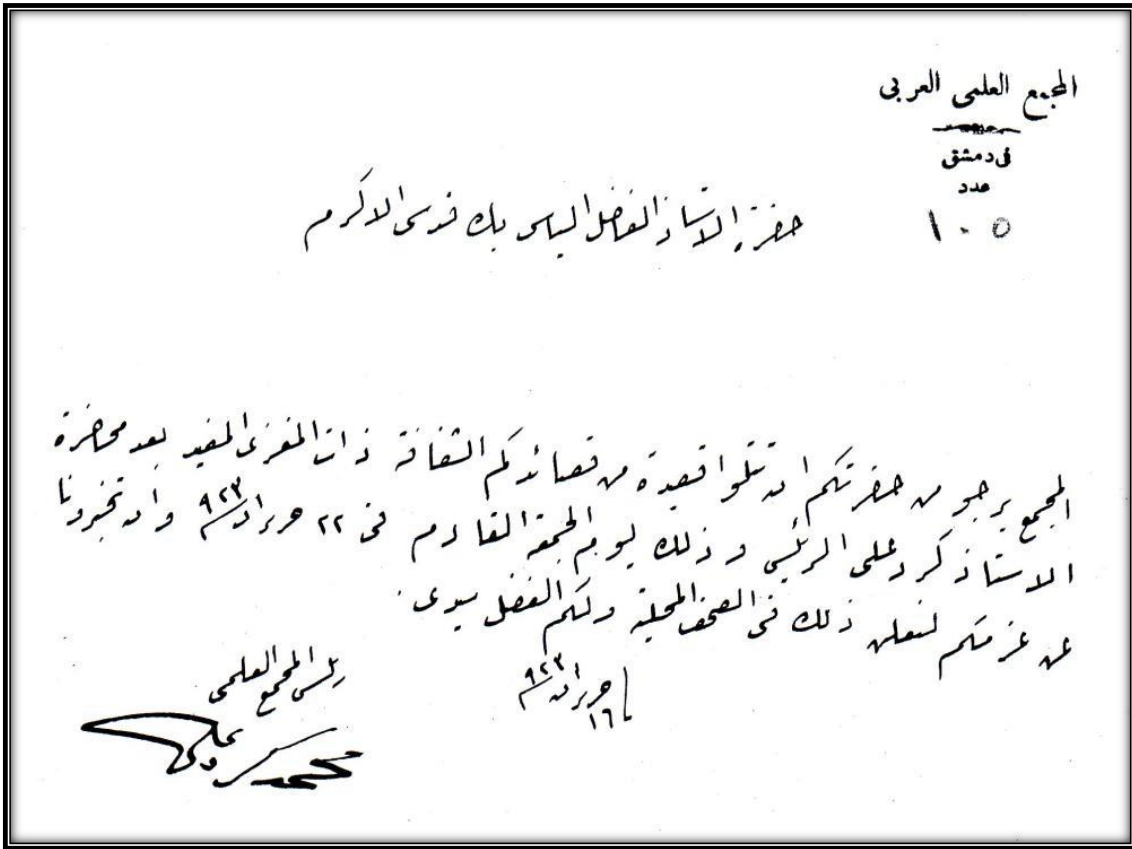 المجمع العلمى العربى
فى دمشق
عدد
١٠٥
حضرة الاستاذ الفاضل الياس بك قدسى الاكرم
المجمع يرجو من حضرتكم ان تتلوا قصيدة من قصائدكم الشفافة ذات المغزى المفيد بعد محاضرة
الاستاذ كرد على الرئيس وذلك يوم الجمعة القادم فى ٢٢ حزيران ٩٢٣ وان تخبرونا
عن عزمكم لنعلن ذلك فى الصحف المحلية ولكم الفضل سيدى
١٦ حزيران ٩٢٣
رئيس المجمع العلمى
محمد كرد على